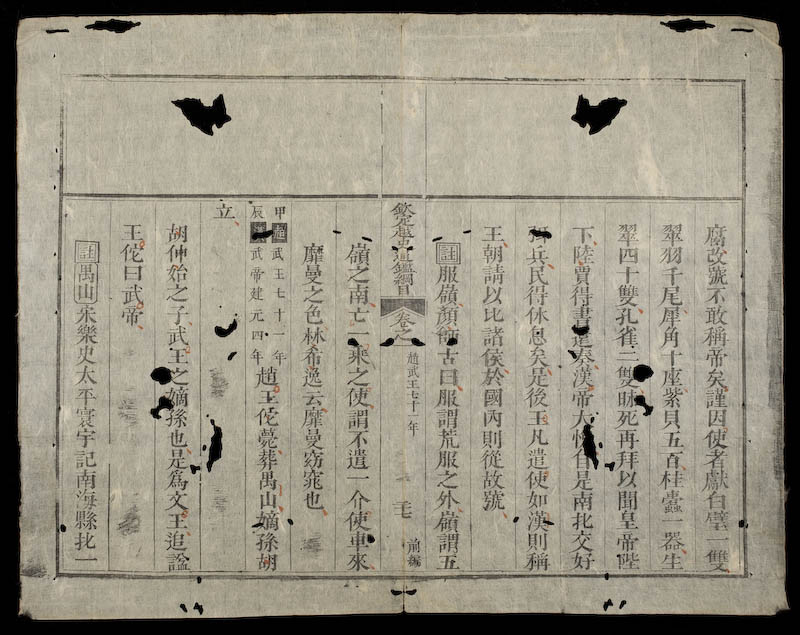 腐改號不敢稱帝矣謹因使者獻白璧一雙
翠羽千尾犀角十座紫貝五百桂蠹一器生
翠四十雙孔雀二雙昧死再拜以聞皇帝陛
下陸賈得書還奏漢帝大悅自是南北交好
兵民得休息矣是後王凡遣使如漢則稱
王朝請以比諸侯於國內則從故號
註服嶺顏師古曰服謂荒服之外嶺謂五
欽定越史通鑑綱目
卷之一
趙武王七十一年
前編
嶺之南亡一乘之使謂不遣一介使車來
靡曼之色林希逸云靡曼窈窕也
甲辰
武王七十一年
武帝建元四年
趙王佗薨葬禺山嫡孫胡
立
胡仲始之子武王之嫡孫也是爲文王追謚
王佗曰武帝
註禺山宋樂史太平寰宇記南海縣北一